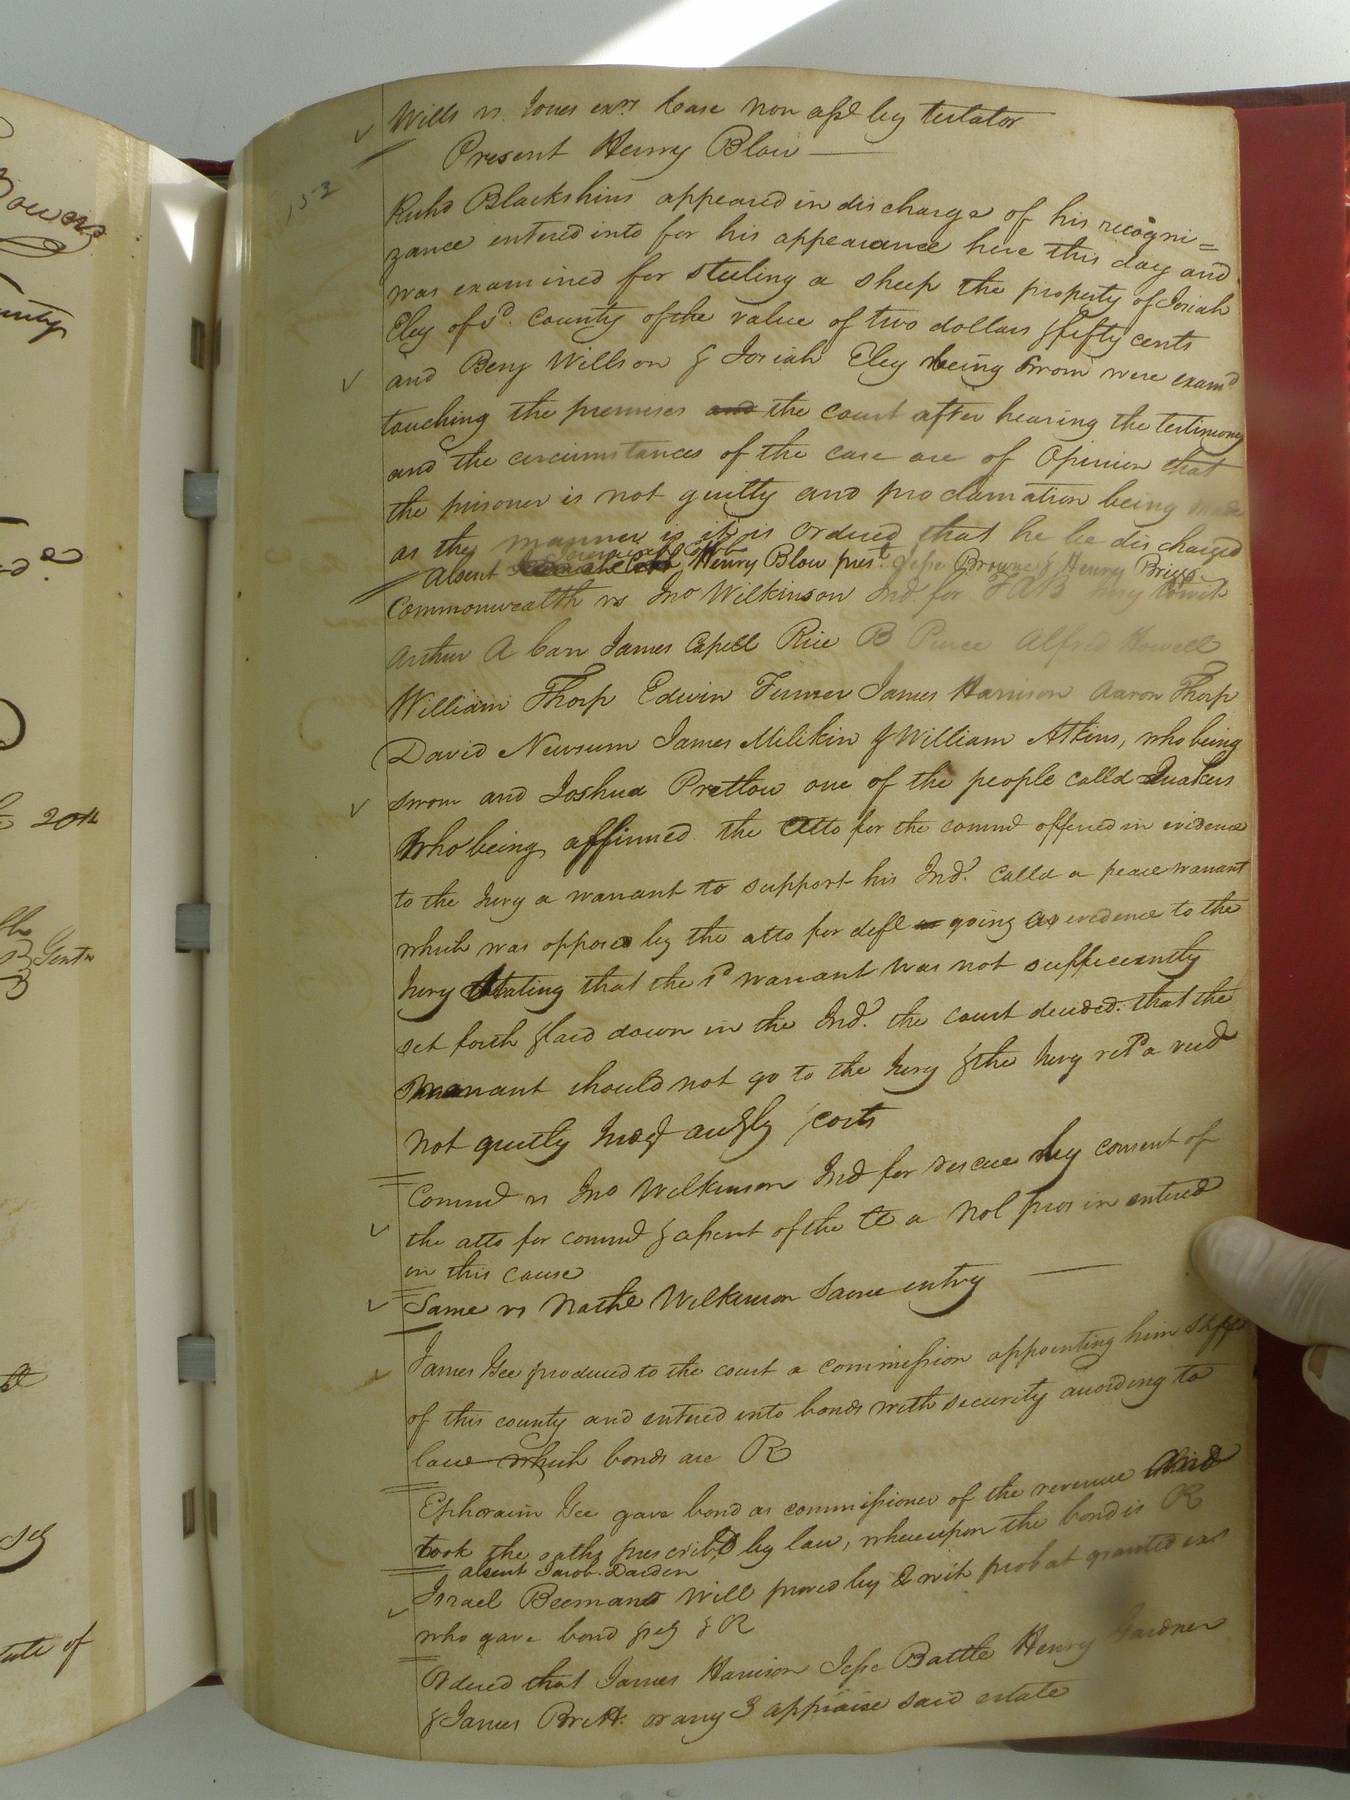 Wills vs. Jones exrs. Case non asst by testator
Present Henry Blow
152
Blackshins appeared in discharge of his recogni=
zance entered into for his appearance here this day and
was examined for steeling a sheep the property of Josiah
Eley of sd. County of the value of two dollars & fifty cents
and Benj Willson & Josiah Eley being sworn were examd
touching the premises and the court after hearing the testimony
and the circumstances of the case are of Opinion that
the prisoner is not guilty and proclamation being made
as the manner is it is ordered that he be discharged
Absent Henry Blow prest. Jesse Browne & Henry Briggs
Commonwealth vs Jno Wilkinson Ind for TAB Jury towit
Arthur A Carr James Capell Rice B Pierce Alfred Howell
William Thorp Edwin Turner James Harrison Aaron Thorp
David Newsum James Milikin & William Atkins, who being
sworn and Joshua Pretlow one of the people calld Quakers
who being affirmed. the atto for the commd offered in evidence
to the Jury a warrant to support his Ind. Calld a peace warrant
which was opposed by the atto for deft going as evidence to the
Jury stating that the sd warrant was not sufficeantly
set forth & laid down in the Ind. the court decided that the
warrant should not go to the Jury & the Jury retd a verd
Not guilty Judgt accgly costs
Commd vs Jno Wilkinson Ind for rescue by consent of
the atto for commd & assent of the Ct a Nol pros in entered
in this cause
Same vs Nathl Wilkinson Same entry
James Gee produced to the court a commission appointing him Shff
of this county and entered into bonds with security according to
law which bonds are R
Ephraim Gee gave bond as commissioner of the revenue and
took the oaths prescribd by law, whereupon the bond is R
absent Jacob Darden
Israel Beemans Will proved by 2 wit probat granted exr
who gave bond & R
Ordered that James Harrison Jesse Battle Henry Gardner
& James Britt. or any 3 appraise said estate